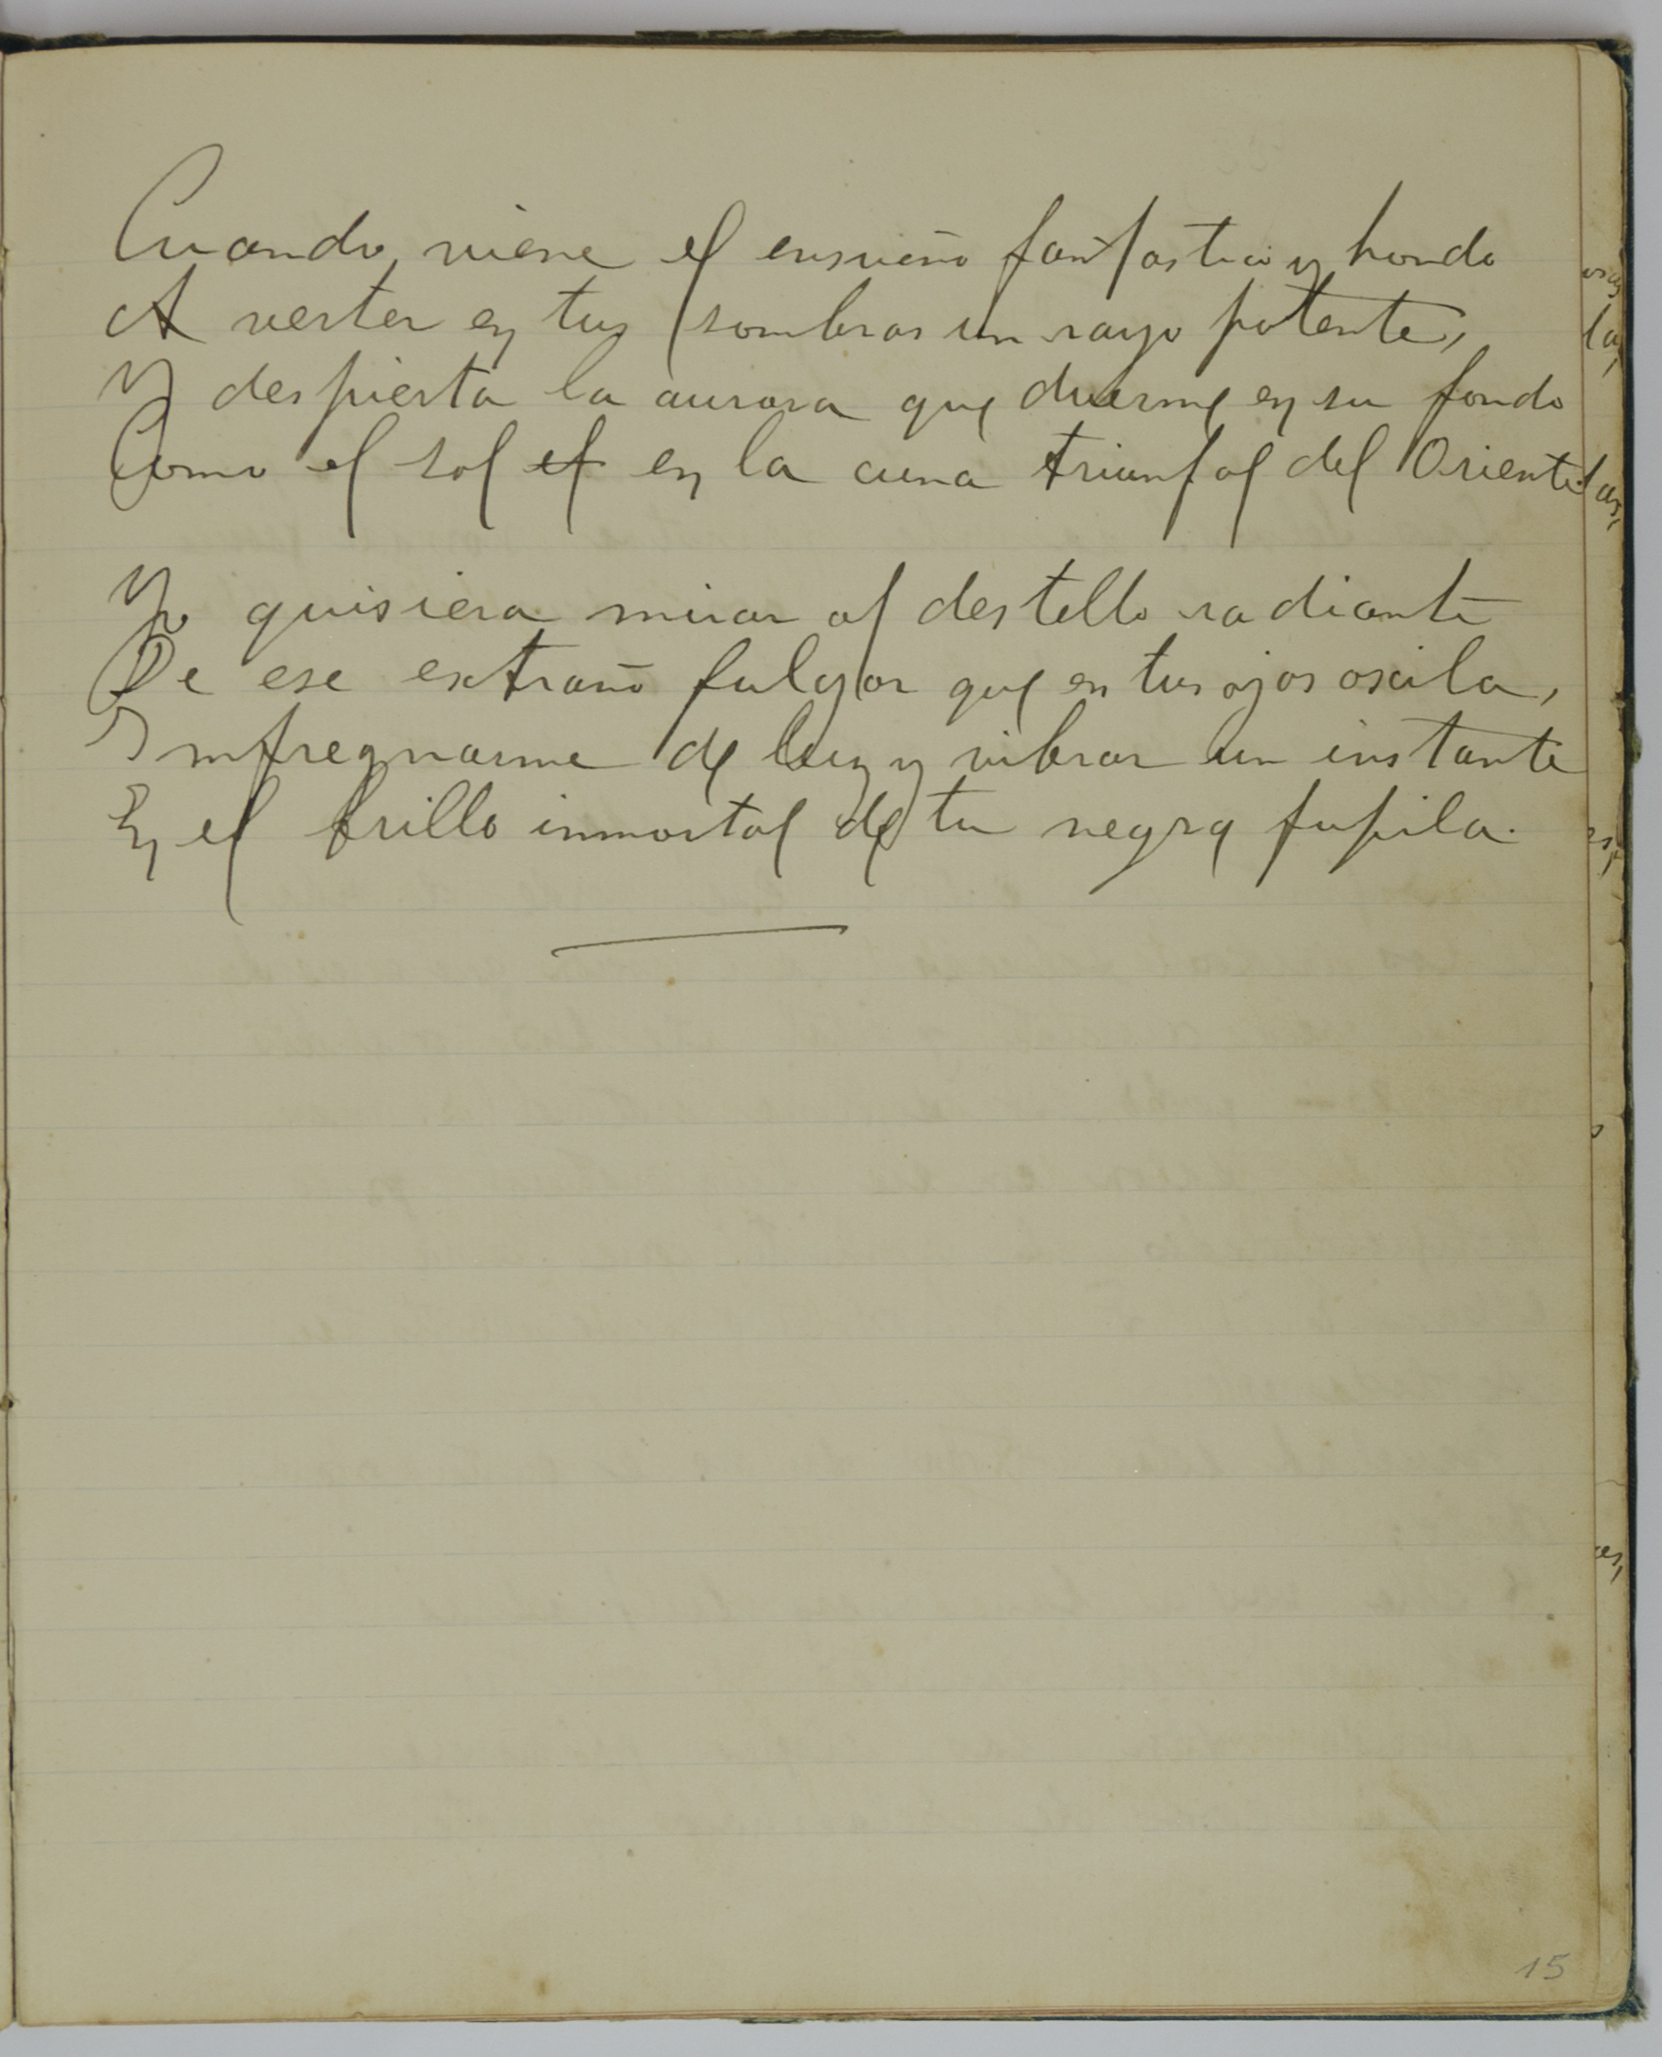 Cuando viene el ensueño fantastico y hondo
A verter en tus sombras un rayo potente,
Y despierta la aurora que duerme en su fondo
Como el sol el en la cuna triunfal del Oriente.
Yo quisiera mirar al destello radiante
De ese extraño fulgor que en tus ojos oscila,
Impregnarme de luz y vibrar un instante
En el brillo inmortal de tu negra pupila.
15